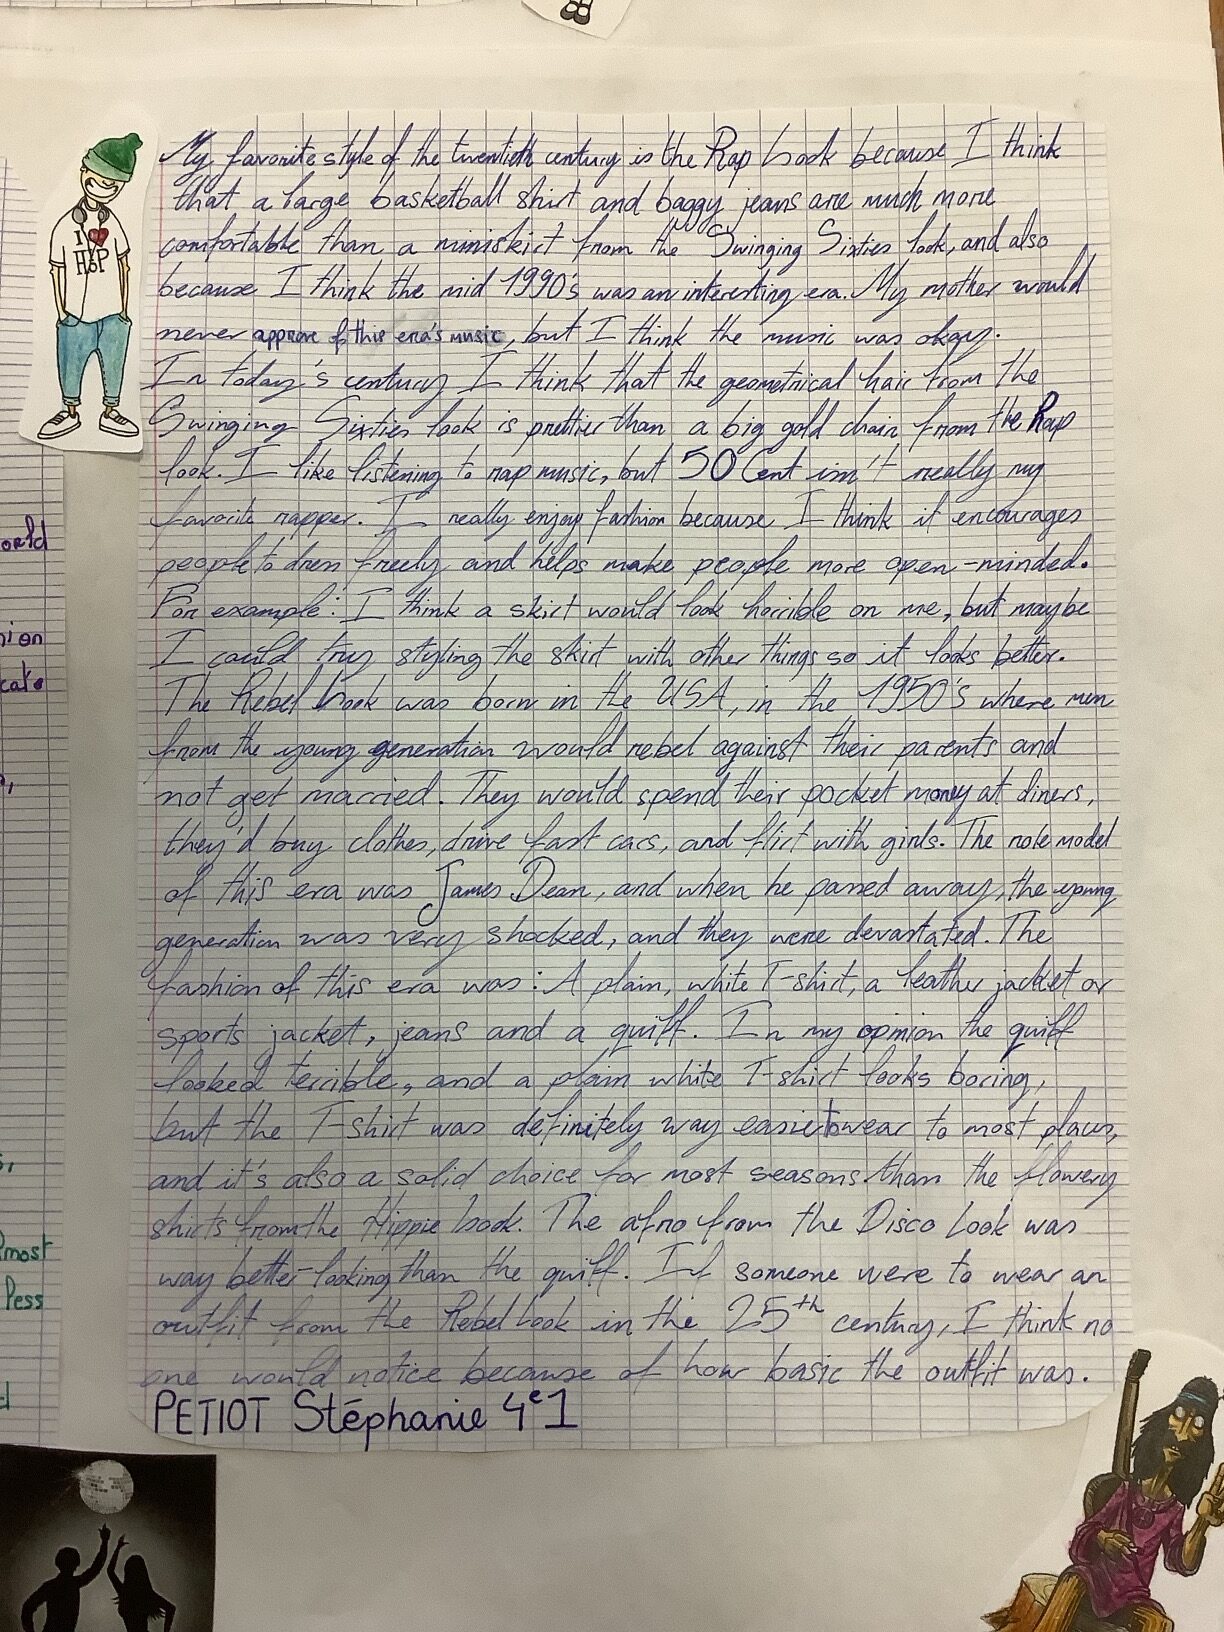 My favorite style of the twentieth century is the Rap Look because I think
that a large basketball shirt and baggy jeans are much more
comfortable than a miniskirt from the Swinging Sixties look, and also
because I think the mid 1990's was an interesting era. My mother would
never approve of this era's music, but I think the music was okay.
In today's century I think that the geometrical hair from the
Swinging Sixties look is prettier than a big gold chain from the Rap
look. I like listening to rap music, but 50 Cent isn't really my
favorite rapper. I really enjoy fashion because I think it encourages
people to dress freely and helps make people more open-minded.
For example: I think a skirt would look horrible on me, but maybe
I could try styling the skirt with other things so it looks better.
The Rebel Look was born in the USA, in the 1950's where men
from the young generation would rebel against their parents and
not get married. They would spend their pocket money at diners,
they'd buy clothes, drive fast cars, and flirt with girls. The role model
of this era was James Dean, and when he passed away, the young
generation was very shocked, and they were devastated. The
fashion of this era was: A plain, white T-shirt, a leather jacket or
sports jacket, jeans and a quiff. In my opinion the quiff
looked terrible, and a plain white T-shirt looks boring,
but the T-shirt was definitely way easier to wear to most places,
and it's also a solid choice for most seasons than the flowery
shirts from the Hippie Look. The afro from the Disco Look was
way better-looking than the quiff. If someone were to wear an
outfit from the Rebel Look in the 25th century, I think no
one would notice because of how basic the outfit was.
PETIOT Stéphanie 4e1
I ♥
HIP
HOP
orld
nion
cate
most
less